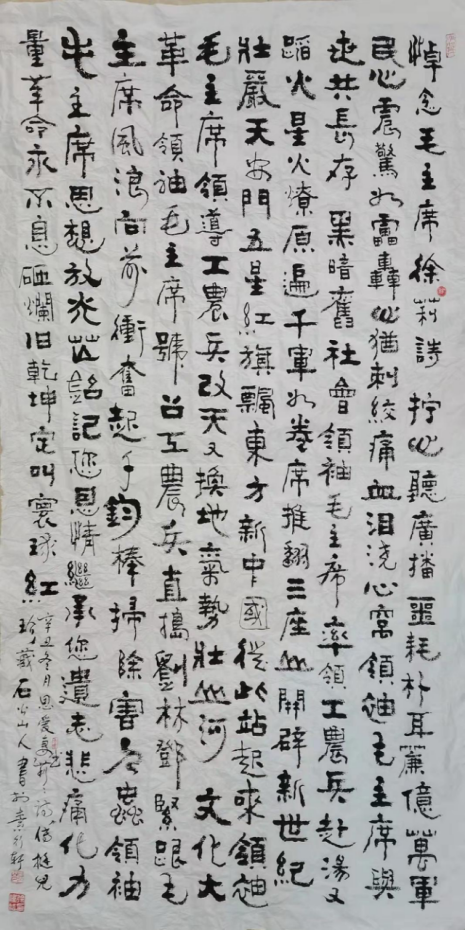 悼念毛主席徐莉詩 拧心聽廣播噩耗朴耳簾億萬軍
民心震驚如雷轟心猶刺絞痛血泪浇心窝領袖毛主席與
世共長存 黑暗舊社會領袖毛主席率領工農兵赴湯又
蹈火星火燎原遍千軍如卷席推翻三座山開辟新世紀
壯嚴天安門五星紅旗飄東方新中國從此站起來領袖
毛主席領導工農兵改天又換地氣勢壯山河 文化大
革命領袖毛主席號召工農兵直搗劉林鄧緊跟毛
主席風浪向前衝奮起千鈞棒掃除害人蟲領袖
毛主席思想放光芒銘記您恩情繼承您遺志悲痛化力
量革命永不息砸爛旧乾坤定叫寰球紅
辛丑冬月恩愛
珍藏石山人書於